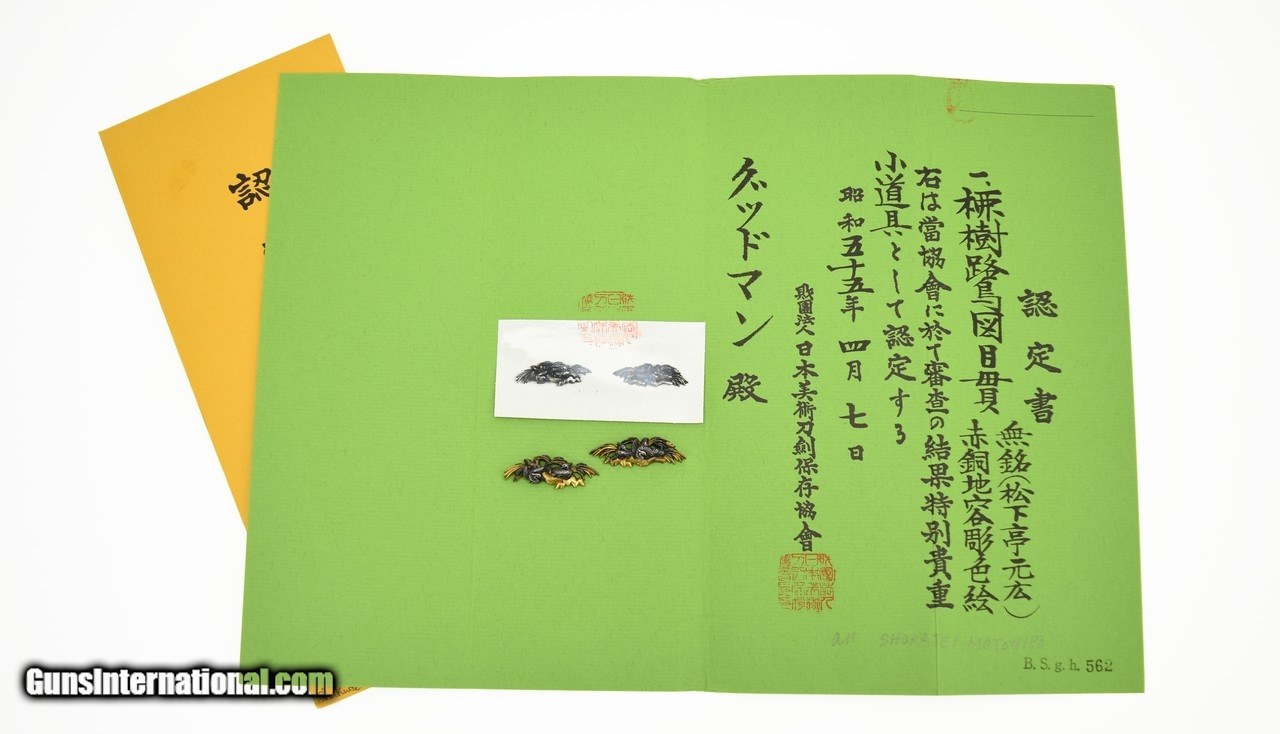 認定書
一、樹鷺図目貫
無銘(松下亭元広)
赤銅地容彫色絵
右は當協會に於て審査の結果特別貴重
小道具として認定する
昭和五十五年四月七日
財團法人 日本美術刀劍保存協會
グッドマン 殿
SHOKATEI MOTOHIRO
B. S. g. h. 562
認
GunsInternational.com